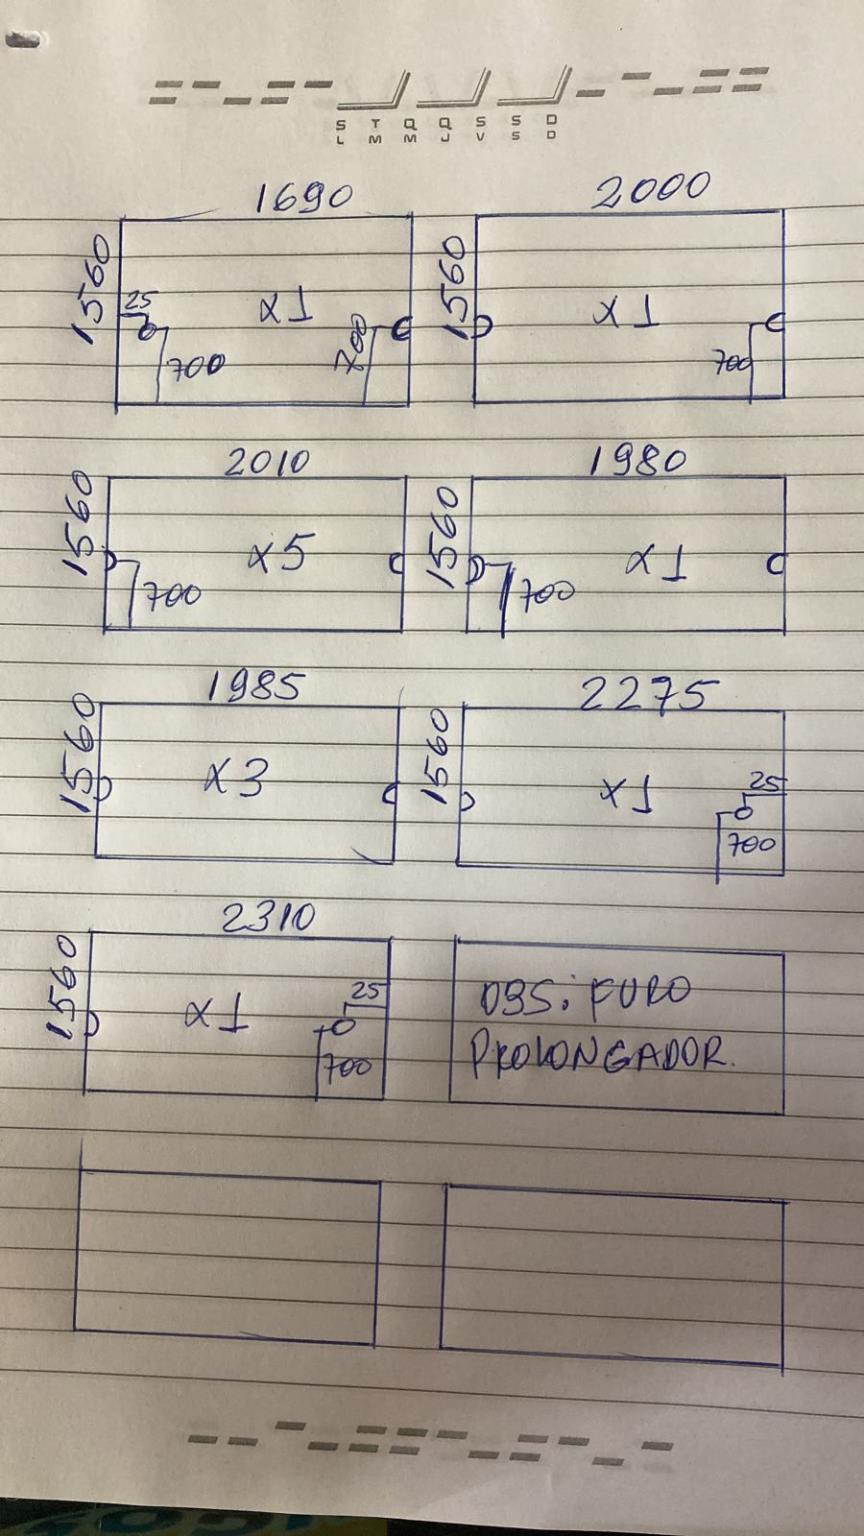 S T Q Q S S D
L M M J V S D
1690
1560
25
x1
700
700
2000
1560
x1
700
2010
1560
x5
700
1980
1560
x1
700
1985
1560
x3
2275
1560
x1
25
700
2310
1560
x1
25
700
OBS: FURO
PROLONGADOR.